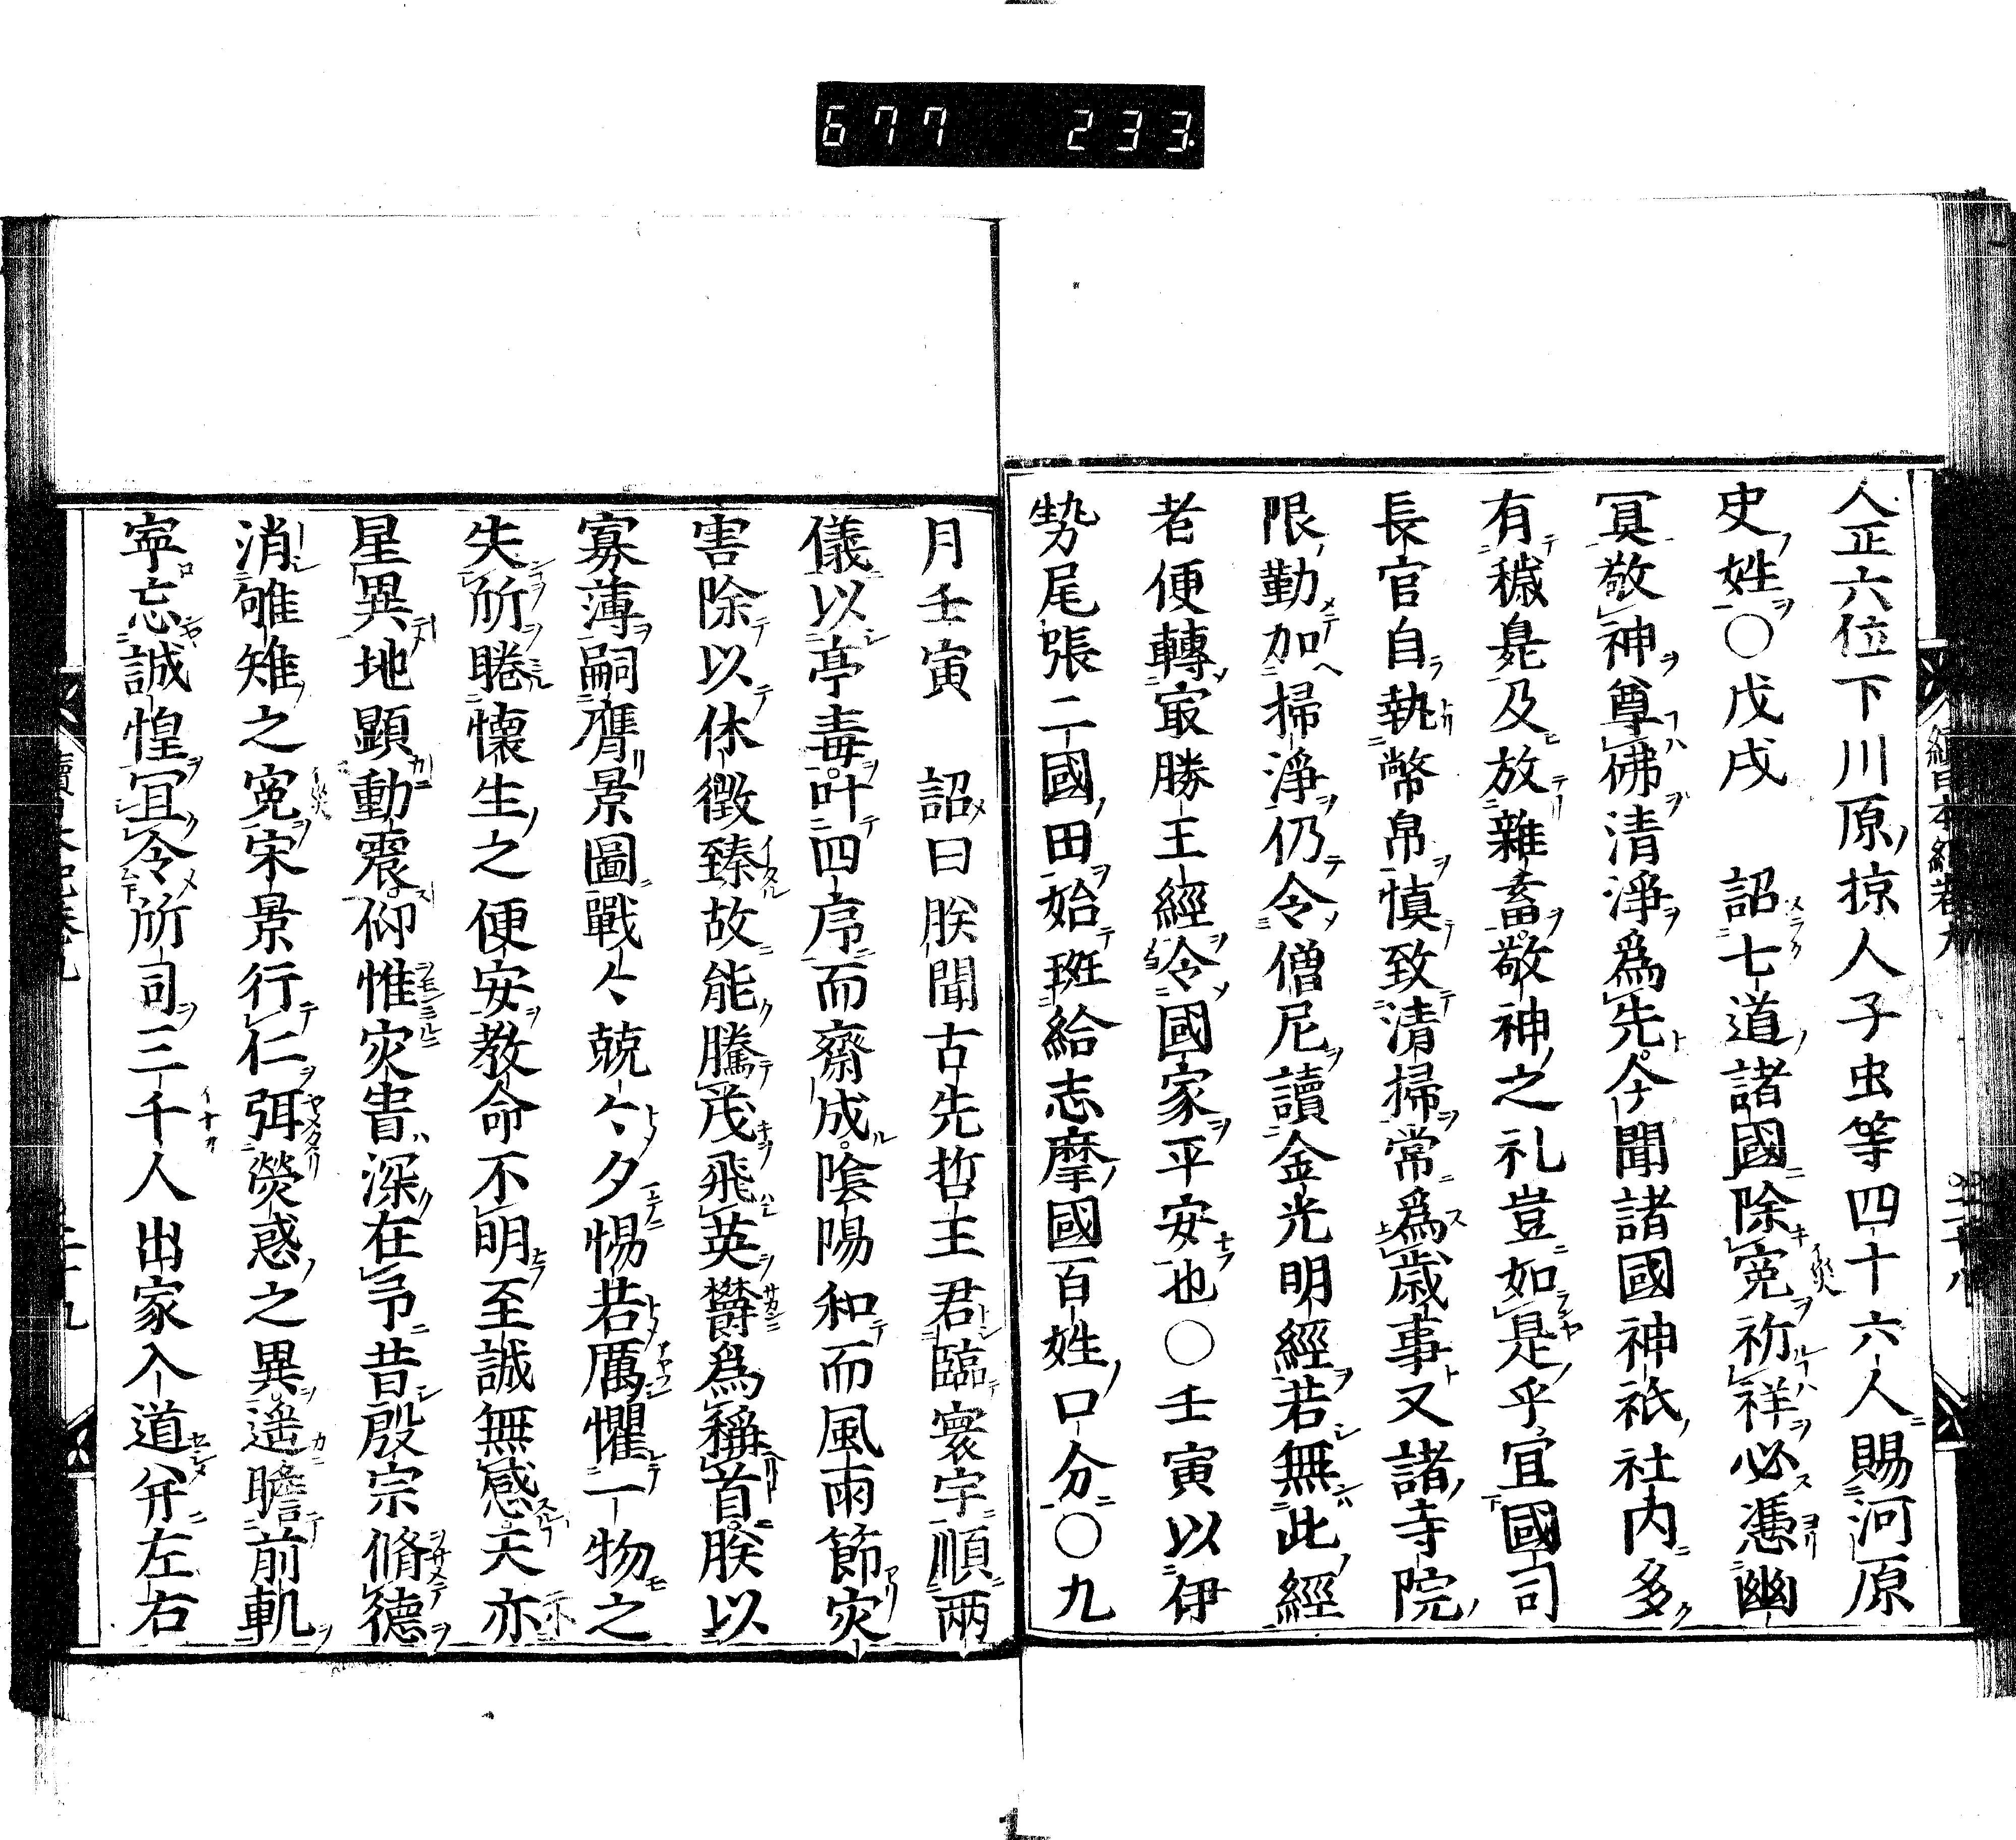 677 233
人正六位下川原椋人子虫等四十六人賜河原
史姓〇戊戌 詔七道諸國除寃祈祥必憑幽
冥敬神尊佛清淨爲先今聞諸國神祇社内多
有穢臰及放雜畜敬神之礼豈如是乎宜國司
長官自執幣帛慎致清掃常爲歳事又諸寺院
限勤加掃淨仍令僧尼讀金光明經若無此經
者便轉㝡勝王經令國家平安也〇壬寅以伊
勢尾張二國田始班給志摩國百姓口分〇九
月壬寅 詔曰朕聞古先哲主君臨寰宇順兩
儀以亭毒叶四序而齋成陰陽和而風雨節灾
害除以休徵臻故能騰茂飛英欝爲稱首朕以
寡薄嗣膺景圖戰〻兢〻夕惕若厲懼一物之
失所睠懷生之便安教命不明至誠無感天亦
星異地顕動震仰惟灾眚深在予昔殷宗脩德
消雊雉之寃宋景行仁弭熒惑之異遥瞻前軌
寧忘誠惶冝令所司三千人出家入道并左右